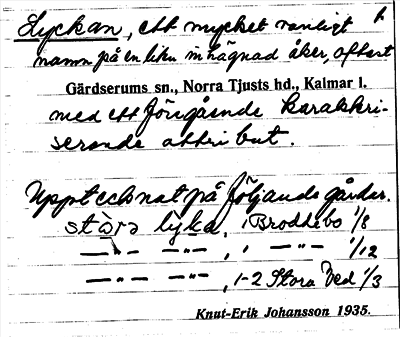 Lyckan, ett mycket vanligt
namn på en liten inhägnad åker, oftast
Gärdserums sn., Norra Tjusts hd., Kalmar l.
med ett föregående karakteri-
serande attribut.
Upptecknat på följande gårdar.
stòra lyka, i Broddebo 1/8
—"— —"—, i —"— 1/12
—"— —"—, 1-2 Stora Bed 1/3
Knut-Erik Johansson 1935.